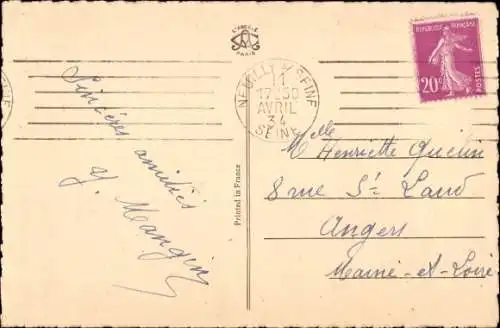 L'ABEILLE
PARIS
NEUILLY S/ SEINE
17 50
AVRIL
34
SEINE
REPUBLIQUE FRANÇAISE
20c
POSTES
Sincères amitiés
Y. Mangin
Printed in France
Melle Henriette Quelin
8 rue St Laud
Angers
Maine-et-Loire